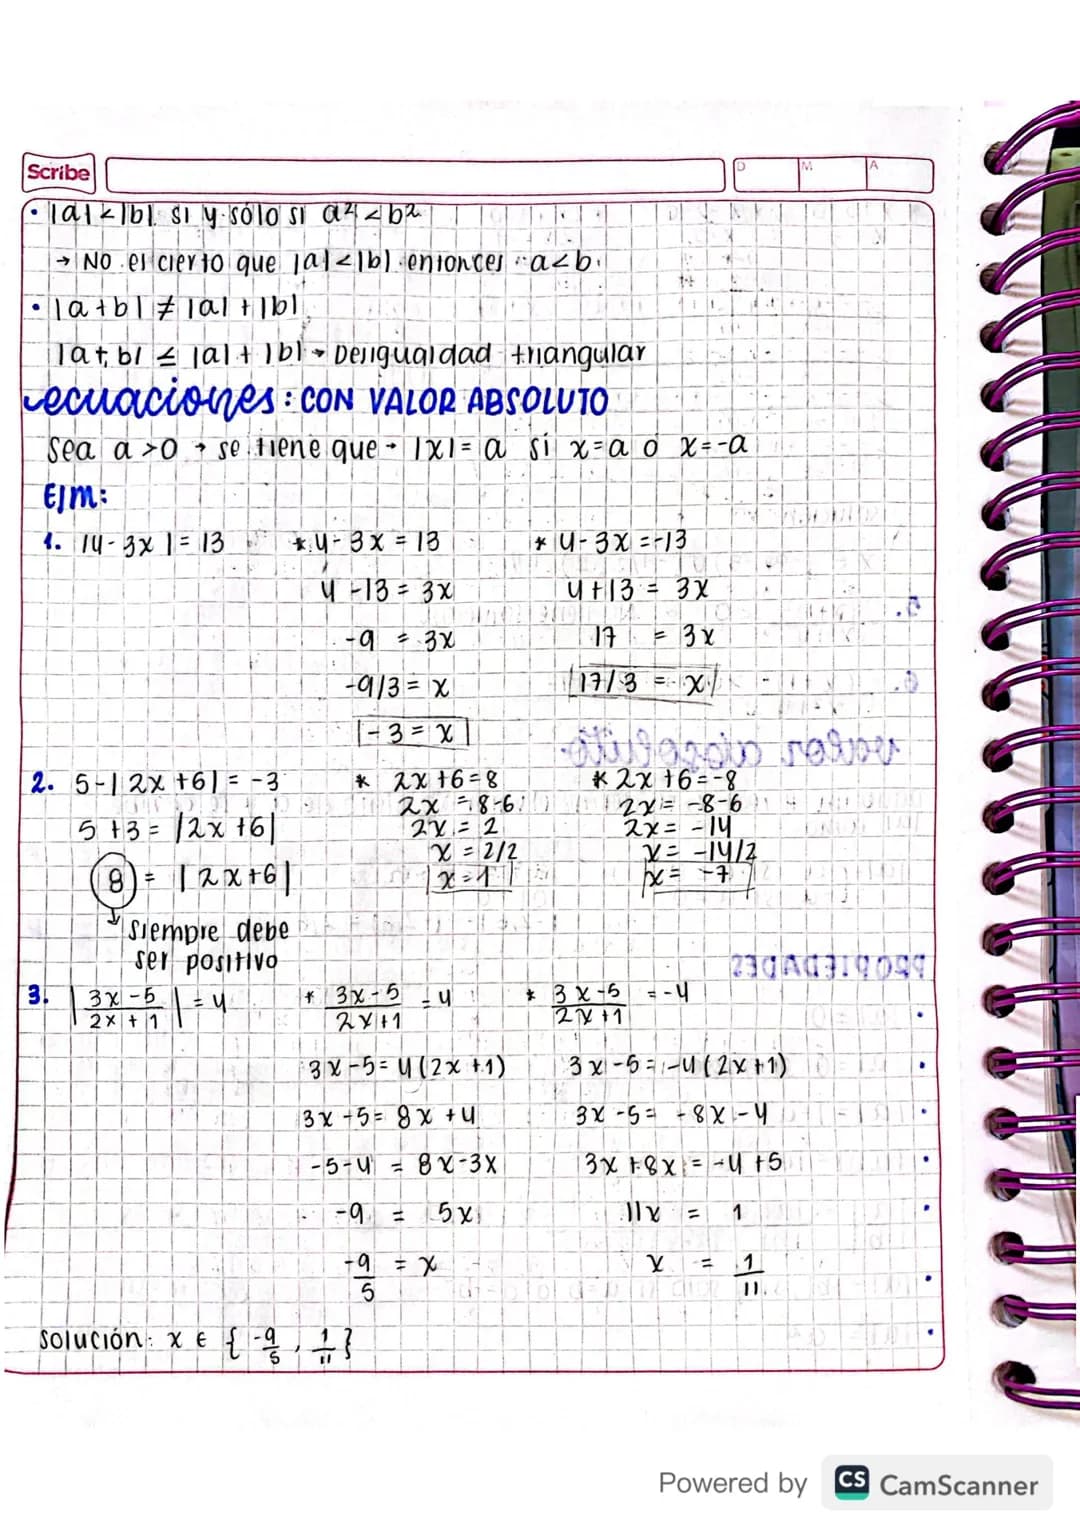 Scribe
D M A
• |a|<|b| si y sólo si a²<b²
→ No es cierto que |a|<|b| entonces a<b.
• |a+b| ≠ |a|+|b|
|a+b| ≤ |a|+|b| → Desigualdad triangular
ecuaciones: CON VALOR ABSOLUTO
Sea a >0 → se tiene que → |x|= a si x=a ó x=-a
EJM:
1. |4-3x|=13 * 4-3x=13 * 4-3x=-13
4-13=3x 4+13=3x
-9 = 3x 17 = 3x
-9/3=x 17/3 = x
-3=x
2. 5-|2x+6|=-3 * 2x+6=8 * 2x+6=-8
2x=8-6 2x=-8-6
5+3=|2x+6| 2x=2 2x=-14
x=2/2 x=-14/2
8=|2x+6| x=1 x=-7
siempre debe
ser positivo
3. |3x-5/2x+1|=4 * 3x-5/2x+1=4 * 3x-5/2x+1=-4
3x-5=4(2x+1) 3x-5=-4(2x+1)
3x-5=8x+4 3x-5=-8x-4
-5-4 = 8x-3x 3x+8x=-4+5
-9 = 5x 11x = 1
-9/5 = x x = 1/11
solución: x ∈ {-9/5, 1/11}
Powered by CS CamScanner